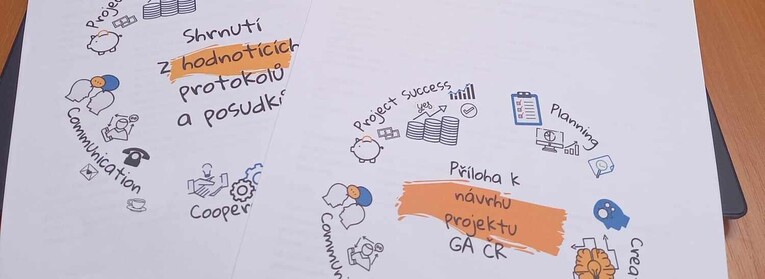 Shrnutí
z hodnotících
protokolů
a posudků
Communication
Project success
yey
Planning
Příloha k
návrhu
projektu
GA ČR